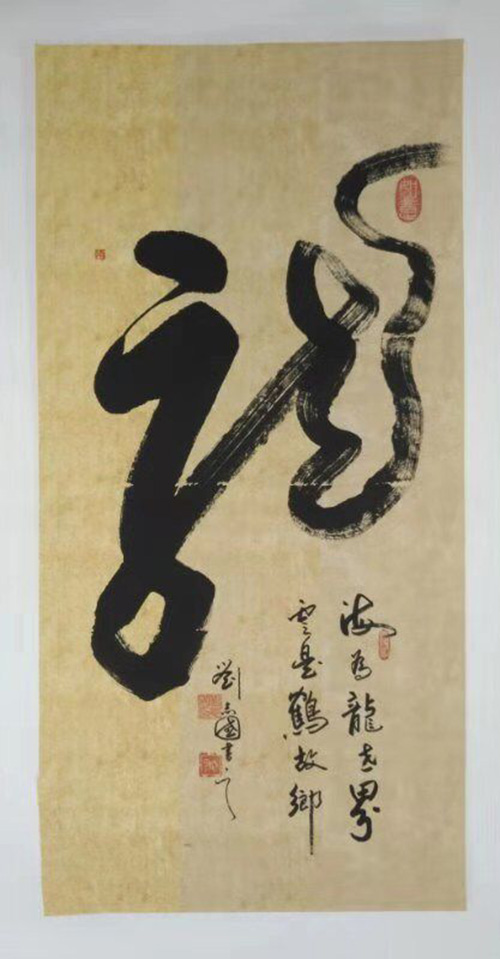 龍
海為龍世界
雲是鶴故鄉
劉志國書